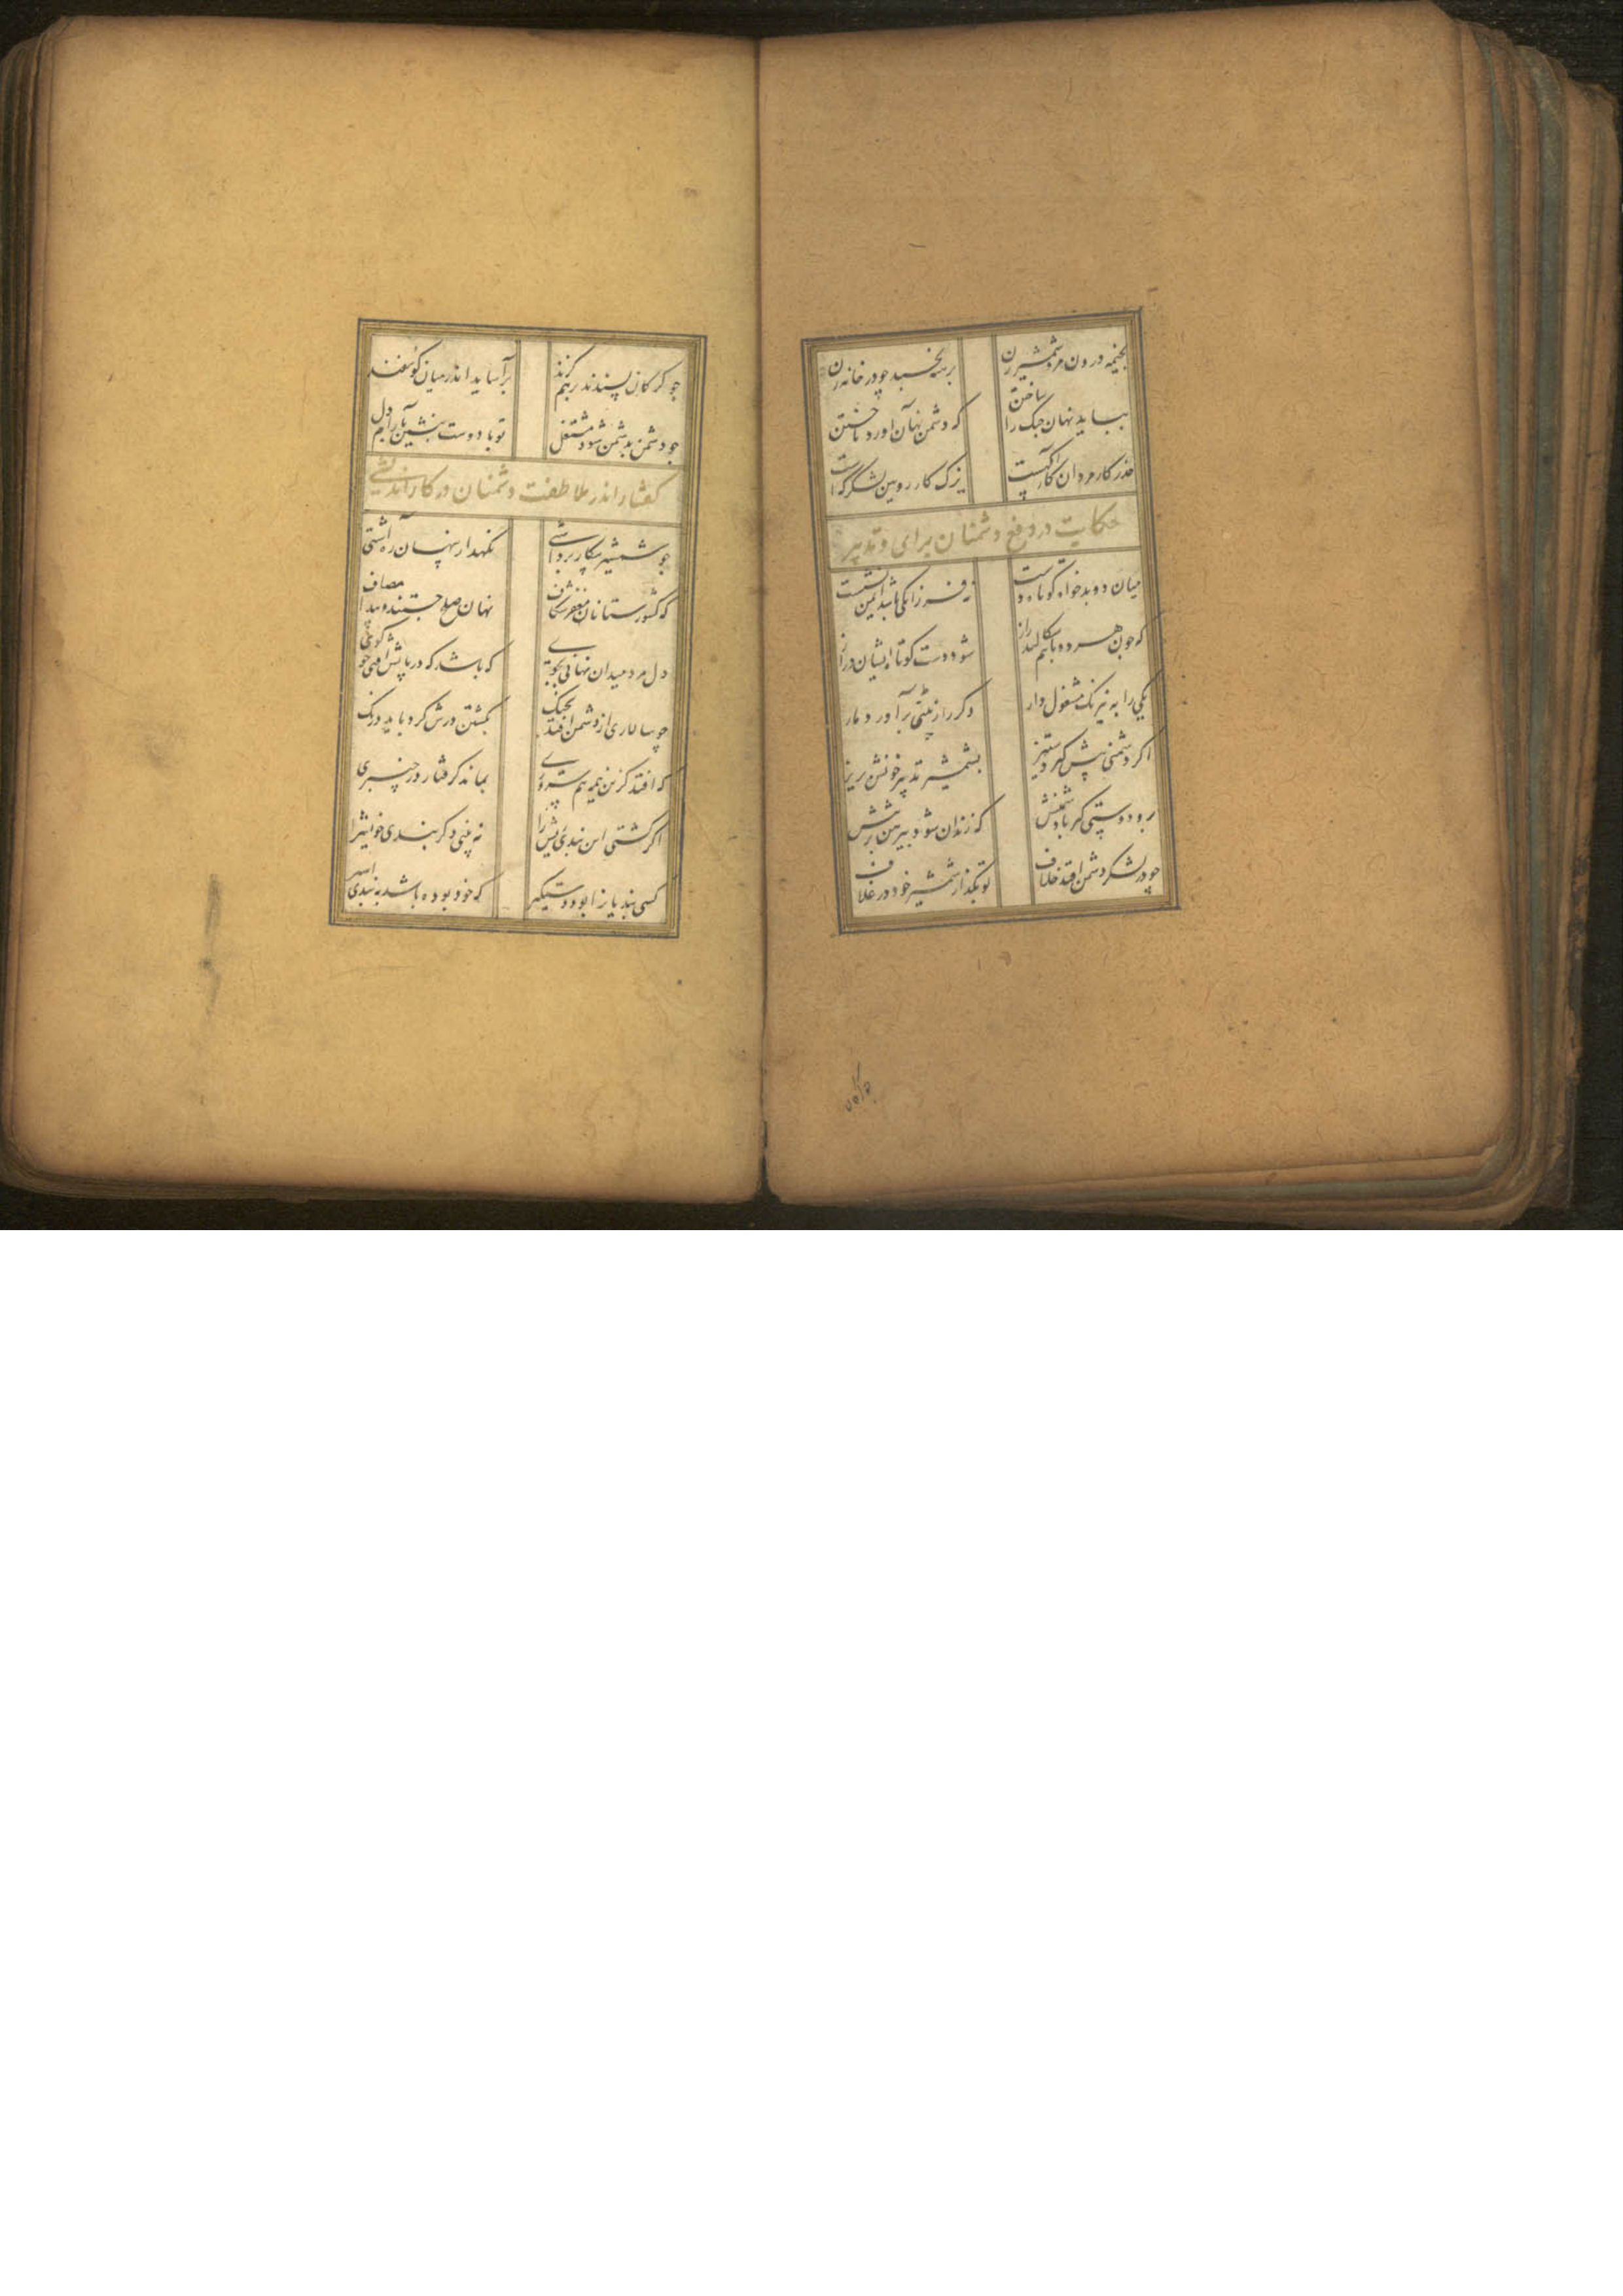 بخیمه درون مرد شمشیر زن برهنه نخسبد چو در خانه زن
بباید نهان جنک را ساختن که دشمن نهان آورد تاختن
حذر کار مردان کار آکهست یزک کار رویین لشکر کهست
حکایت در دفع دشمنان برای و تدبیر
میان دو بدخواه کوتاه دست نه فرزانکی باشد ایمن نشست
که چون هر دو باهم سکالند راز شود دست کوتاه ایشان دراز
یکی را به نیرنک مشغول دار دکر را ز هستی برآور دمار
اکر دشمنی پیش کیرد ستیز بشمشیر تدبیر خونش بریز
برو دوستی کیر با دشمنش که زندان شود پیرهن بر تنش
چو در لشکر دشمن افتد خلاف تو بکذار شمشیر خود در غلاف
چو کرکان پسندند بر هم کزند برآساید اندر میان کوسفند
چو دشمن بدشمن شود مشتغل تو با دوست بنشین بآرام دل
کفتار اندر ملاطفت دشمنان در کار اندیشی
چو شمشیر پیکار برداشتی نکهدار پنهان ره آشتی
که کشور ستانان مغفر شکاف نهان صلح جستند و پیدا مصاف
دل مرد میدان نهانی بجوی که باشد که در پایش افتی چو کوی
چو سالاری از دشمن افتد بجنک بکشتن درش کرد باید درنک
که افتد کزین نیمه هم سروری بماند کرفتار در چنبری
اکر کشتی این بندی ریش را نه بینی دکر بندی خویش را
کسی بندیانرا بود دستکیر که خود بوده باشد به بندی اسیر